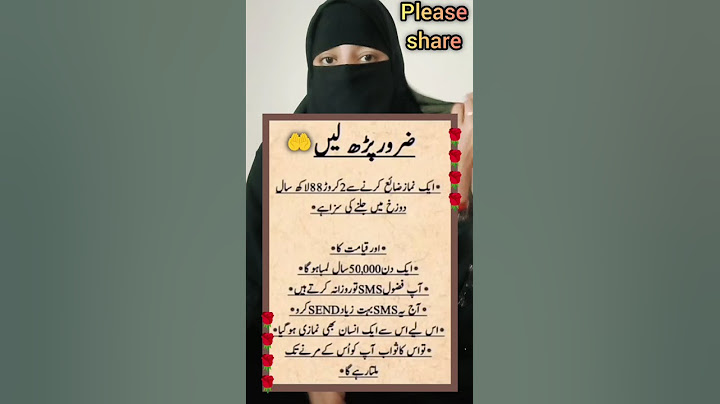 Please
share
ضرور پڑھ لیں
•ایک نماز ضائع کرنے سے 2 کروڑ 88 لاکھ سال
دوزخ میں جلنے کی سزا ہے•
•اور قیامت کا•
•ایک دن 50,000 سال لمبا ہو گا•
•آپ فضول SMS تو روزانہ کرتے ہیں•
•آج یہ SMS بہت زیاد SEND کرو•
•اس لیے اس سے ایک انسان بھی نمازی ہو گیا•
•تو اس کا ثواب آپ کو اُس کے مرنے تک
ملتا رہے گا•